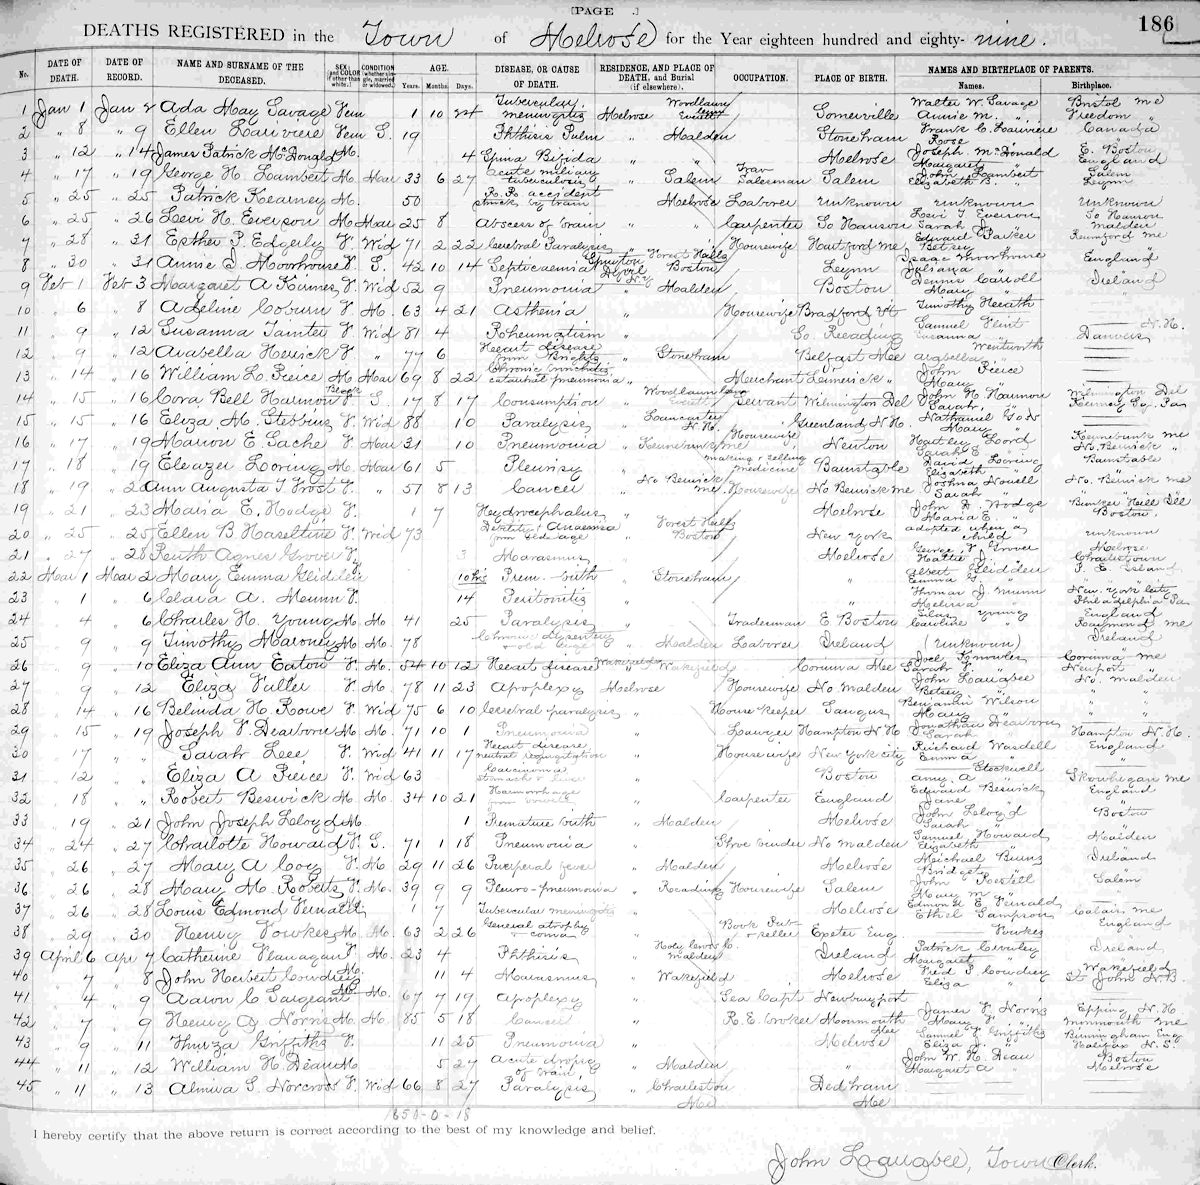 [PAGE .]
186
DEATHS REGISTERED in the Town of Melrose for the Year eighteen hundred and eighty-nine.
No. DATE OF DEATH. DATE OF RECORD. NAME AND SURNAME OF THE DECEASED. SEX and COLOR if other than white. CONDITION (whether single, married or widowed.) AGE. Years. Months. Days. DISEASE, OR CAUSE OF DEATH. RESIDENCE, AND PLACE OF DEATH, and Burial (if elsewhere). OCCUPATION. PLACE OF BIRTH. NAMES AND BIRTHPLACE OF PARENTS. Names. Birthplace.
1 Jan 1 Jan 2 Ada May Savage Fem 1 10 24 Tubercular meningitis Melrose Woodlawn Everett Somerville Walter W. Savage Annie M. " Bristol Me Freedom "
2 " 8 " 9 Ellen Lariviere Fem S. 19 Phthisis Pulm " Malden Stoneham Frank C. Lariviere Rose Canada
3 " 12 " 14 James Patrick McDonald M. 4 Spina Bifida " " Melrose Joseph McDonald Margaret " E. Boston England
4 " 17 " 19 George H. Lambert M. Mar 33 6 27 Acute miliary tuberculosis " Salem Trav Salesman Salem John Lambert Elizabeth B. " Salem Lynn
5 " 25 " 25 Patrick Kearney M. 50 R. R. accident struck by train Melrose Laborer unknown unknown unknown
6 " 25 " 26 Levi H. Everson M. Mar 25 8 Abscess of brain " Carpenter So Hanson Levi T Everson Sarah J. " So Hanson Malden
7 " 28 " 31 Esther P. Edgerly F. Wid 71 2 22 Cerebral Paralysis " Housewife Hartford Me Edward Parker Betsey " Rumford Me
8 " 30 " 31 Annie S. Moorhouse F. S. 42 10 14 Septicaemia Forest Hills Boston Lynn Isaac Moorhouse Juliana " England
9 Feb 1 Feb 3 Margaret A Kirmes F. Wid 52 9 Pneumonia " Malden Boston Dennis Carroll Mary " Ireland
10 " 6 " 8 Adeline Coburn F. M. 63 4 21 Asthenia " Housewife Bradford Vt Timothy Heath
11 " 9 " 12 Susanna Tainter F. Wid 81 4 Rheumatism " So. Reading Samuel Flint Susanna " Danvers N. H.
12 " 9 " 12 Arabella Herrick F. " 77 6 Heart disease from Brights " Stoneham Belfast Me Wentworth Arabella "
13 " 14 " 16 William L. Peirce M. Mar 69 8 22 Chronic bronchitis catarrhal pneumonia " Merchant Limerick " John Peirce Mary "
14 " 15 " 16 Cora Bell Harmon Black F. S. 17 8 17 Consumption " Woodlawn Everett Servant Wilmington Del John H. Harmon Sarah " Wilmington Del
15 " 15 " 16 Eliza M. Stebbins F. Wid 88 10 Paralysis " Lancaster N. H. Greenland N. H. Nathaniel Goss Mary "
16 " 17 " 19 Marion E. Eache F. Mar 31 10 Pneumonia " Kennebunk Me Housewife Newton Hartley Lord Sarah E. " Kennebunk Me No. Berwick
17 " 18 " 19 Eleazer Loring M. Mar 61 5 Pleurisy " making & selling medicine Barnstable David Loring Elizabeth " Barnstable
18 " 19 " 20 Ann Augusta T Frost F. " 57 8 13 Cancer " No Berwick Me. Housewife No Berwick Me Joshua Nowell Sarah " No. Berwick Me
19 " 21 " 23 Maria E. Hodge F. 1 7 Hydrocephalus " Melrose John A. Hodge Maria E. " Bunker Hill Ill Boston
20 " 25 " 25 Ellen B. Haseltine F. Wid 73 Debility & Anaemia from Old age " Forest Hills Boston New York adopted when a child unknown
21 " 27 " 28 Ruth Agnes Grover F. 3 Marasmus " Melrose George F. Grover Hattie J. " Melrose Charlestown
22 Mar 1 Mar 2 Mary Emma Glidden F. 10 hrs Prem. birth " Stoneham " Albert Glidden Emma G. " P. E. Island
23 1 " 6 Clara A. Munn F. 14 Peritonitis " " Thomas J. Munn Melina " New York City Philadelphia Pa
24 " 4 " 6 Charles H. Young M. M. 41 25 Paralysis " Tradesman E Boston Elias Young Caroline " England Raymond Me
25 " 9 " 9 Timothy Maroney M. M. 78 Chronic dysentery & old age " Malden Laborer Ireland (unknown) Ireland
26 " 9 " 10 Eliza Ann Eaton F. M. 54 10 12 Heart disease Wakefield Wakefield Corinna Me Joel Knowles Sarah F. " Corinna Me Newport "
27 " 9 " 12 Eliza Fuller F. M. 78 11 23 Apoplexy Melrose Housewife No. Malden John Laughee Betsey " No. Malden
28 " 14 " 16 Belinda H. Rowe F. Wid 75 6 10 Cerebral paralysis " House keeper Saugus Benjamin Wilson Mary " " "
29 " 15 " 19 Joseph F. Dearborn M. M. 71 10 1 Pneumonia " Lawyer Hampton N H Jonathan Dearborn Sarah " Hampton N. H.
30 " 17 " " Sarah Lee F. Wid 41 11 17 Heart disease mitral regurgitation " Housewife New York City Richard Wardell Emma " England
31 " 12 " " Eliza A Pierce F. Wid 63 Carcinoma stomach & liver " Boston Stockwell Amy A " Skowhegan Me
32 " 18 " " Robert Beswick M. M. 34 10 21 Haemorrhage from bowels " Carpenter England Edward Beswick Jane " England
33 " 19 " 21 John Joseph Lloyd M. 1 Premature birth " Malden Melrose John Lloyd Sarah " Boston
34 " 24 " 27 Charlotte Howard F. S. 71 1 18 Pneumonia " Shoe binder No Malden Samuel Howard Elizabeth " Malden
35 " 26 " 27 Mary A Coy F. M. 29 11 26 Puerperal fever " Malden Melrose Michael Burns Bridget " Ireland
36 " 26 " 28 Mary M. Roberts F. M. 39 9 9 Pleuro-pneumonia " Reading Housewife Salem John Restell Mary M " Salem
37 " 26 " 28 Louis Edmond Fernald M. 1 7 Tubercular meningitis " Melrose Edmond E. Fernald Ethel Sampson Calais Me
38 " 29 " 30 Henry Fowkes M. M. 63 2 26 General atrophy & coma " Book Pub & seller Exeter Eng. Fowkes England
39 April 6 Apr 7 Catherine Flanagan F. M. 23 4 Phthisis " Holy Cross C. Malden Ireland Patrick Crowley Margaret " Ireland
40 " 7 " 8 John Herbert Cowdrey M. 11 4 Marasmus " Wakefield Melrose Fred P. Cowdrey Eliza " Wakefield St. John N.B.
41 " 4 " 9 Aaron C Sargeant M. M. 67 7 19 Apoplexy " Sea Capt Newburyport
42 " 7 " 9 Henry O Norris M. M. 85 5 18 Cancer " R. E. Broker Monmouth Me James F Norris Mary F. " Epping N. H Monmouth Me
43 " 9 " 11 Thirza Griffiths F. 11 25 Pneumonia " Melrose Samuel Griffiths Eliza J. " Birmingham Eng Halifax N. S.
44 " 11 " 12 William H. Dean M. 5 27 Acute dropsy of brain " Malden " John W. H. Dean Margaret A " Boston Melrose
45 " 11 " 13 Almira S Norcross F. Wid 66 8 27 Paralysis " Charleston Me Dedham Me
I hereby certify that the above return is correct according to the best of my knowledge and belief.
John Laughee, Town Clerk.